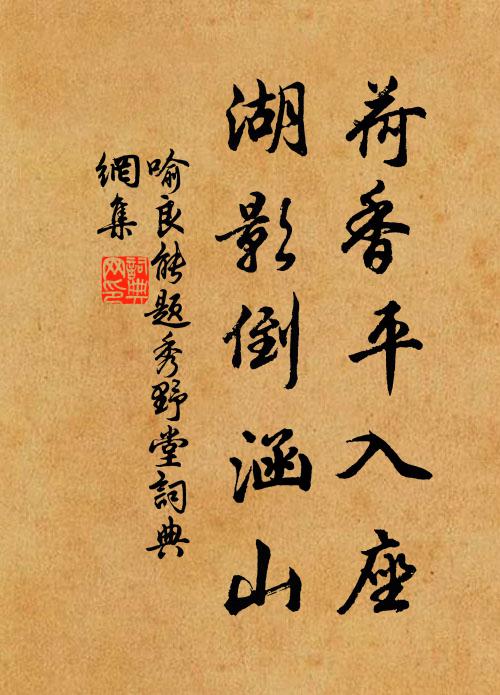 荷香平入座
湖影倒涵山
喻良能題秀野堂詞典
網集
詞典網印